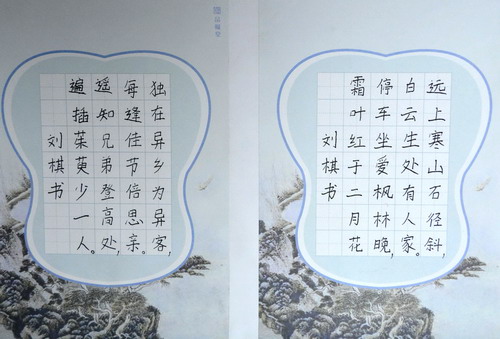 独在异乡为异客,
每逢佳节倍思亲。
遥知兄弟登高处,
遍插茱萸少一人。
刘棋书
远上寒山石径斜,
白云生处有人家。
停车坐爱枫林晚,
霜叶红于二月花
刘棋书